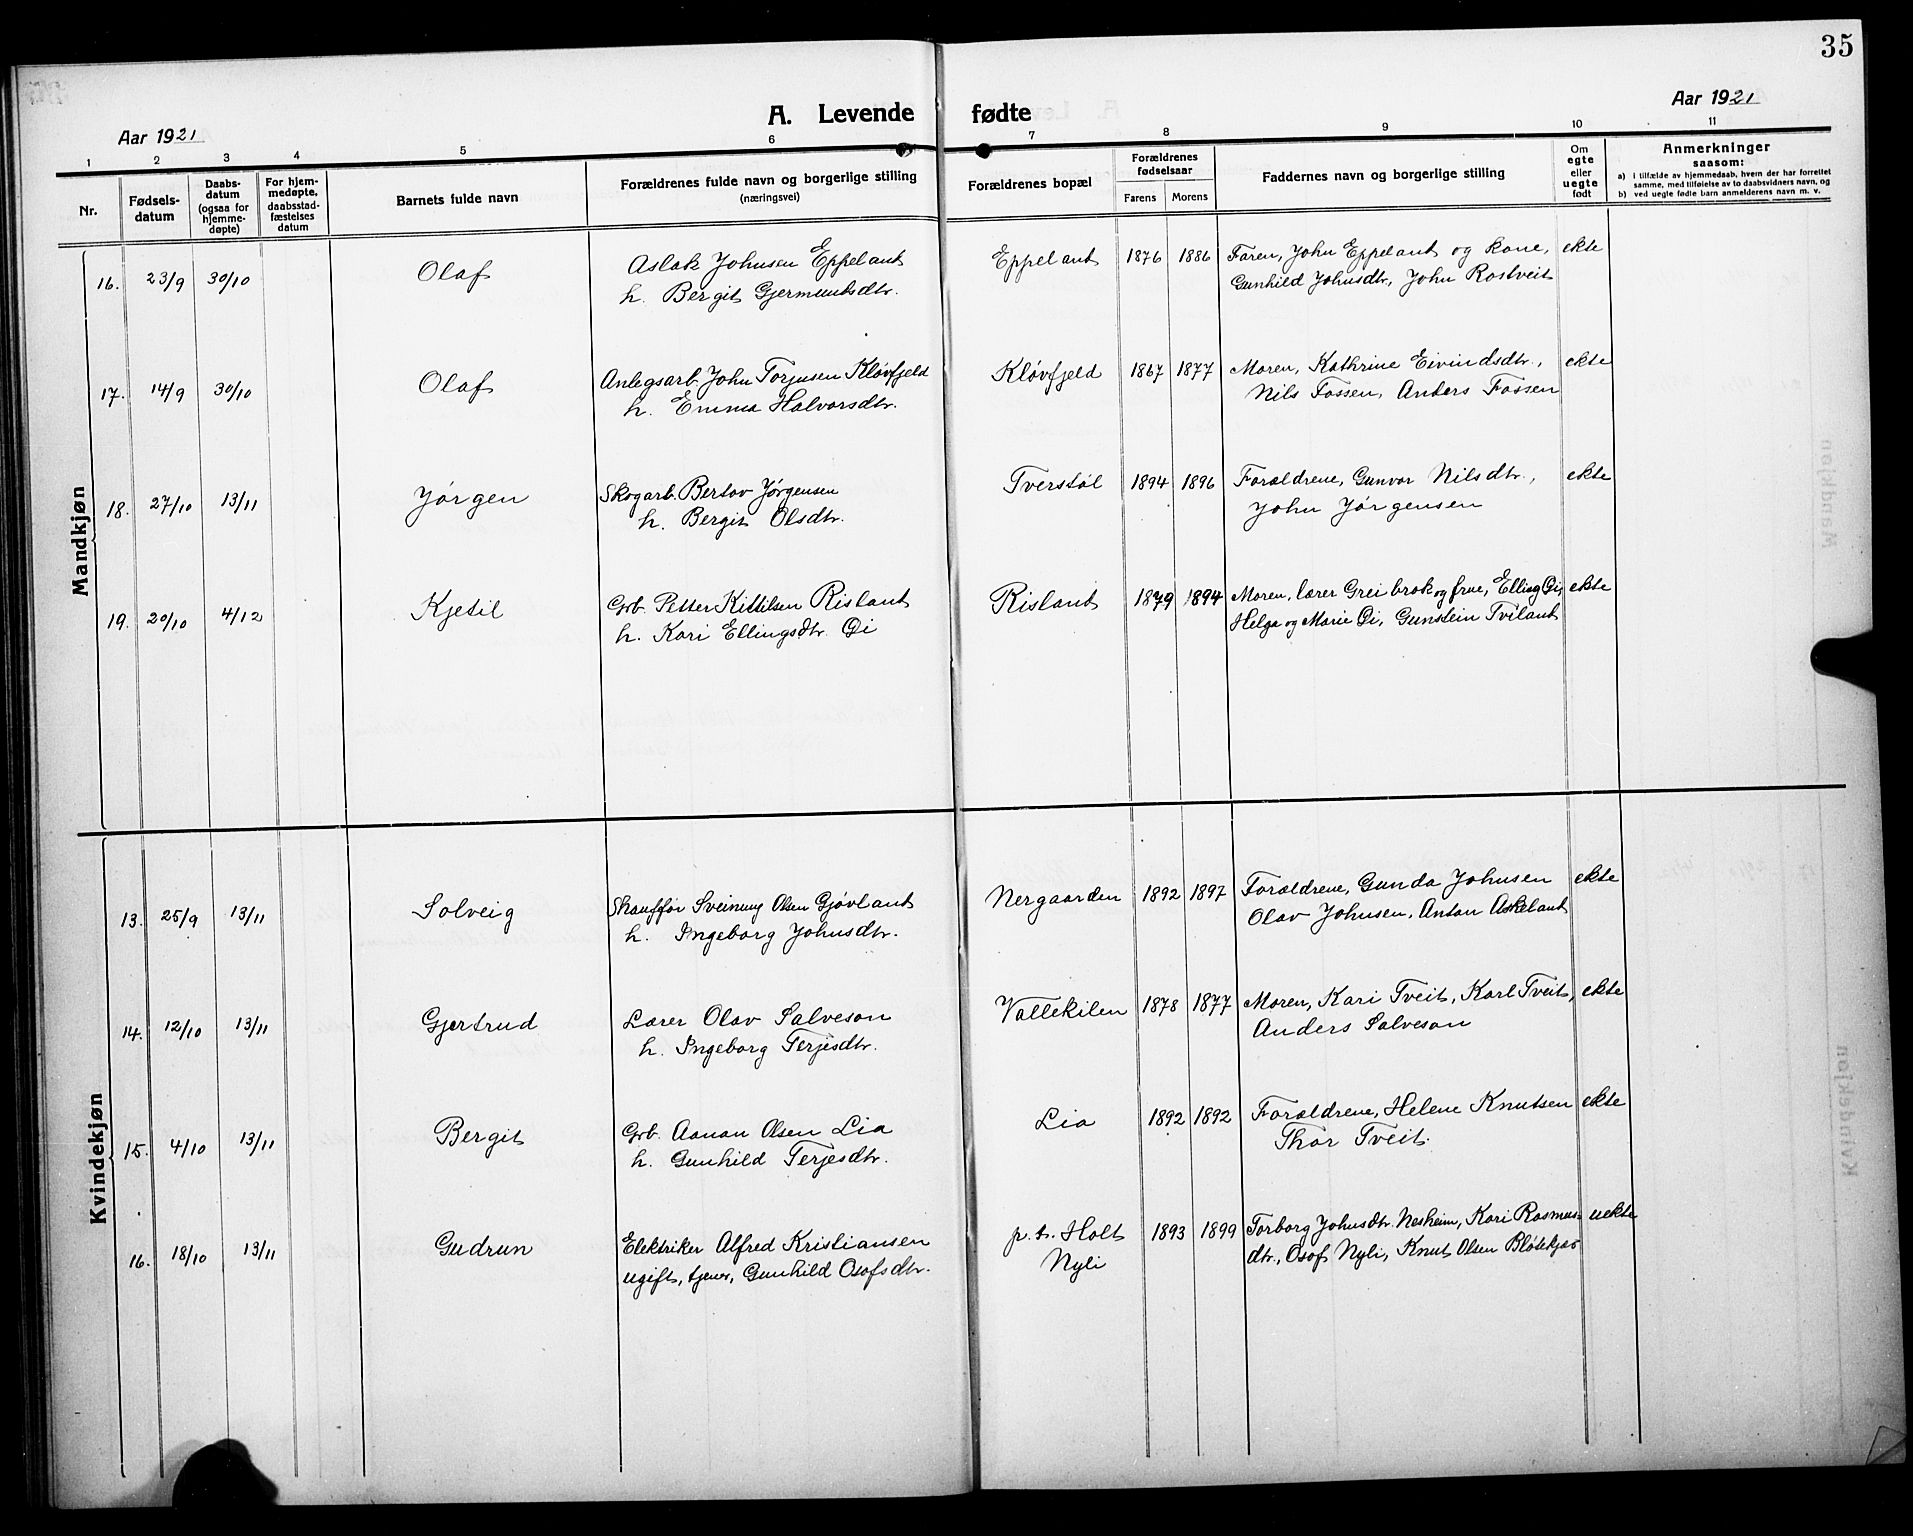 35
A. Levende fødte
Aar 1921
Aar 1921
1 2 3 4 5 6 7 8 9 10 11
Nr.
Fødsels-
datum
Daabs-
datum
(ogsaa for
hjemme-
døpte)
For hjem-
medøpte,
daabsstad-
fæstelses
datum
Barnets fulde navn
Forældrenes fulde navn og borgerlige stilling
(næringsvei)
Forældrenes bopæl
Forældrenes
fødselsaar
Farens Morens
Faddernes navn og borgerlige stilling
Om
egte
eller
uegte
født
Anmerkninger
saasom:
a) i tilfælde av hjemmedaab, hvem der har forrettet
samme, med tilføielse av to daabsvidners navn, og
b) ved uegte fødte barn anmelderens navn m. v.
Mandkjøn
16. 23/9 30/10 Olaf Aslak Johnsen Eppelant Eppelant 1876 1886 Faren, John Eppelant og kone, ekte
h. Bergit Gjermundsdtr. Gunhild Johnsdtr, John Rostveit
17. 14/9 30/10 Olaf Anlegsarb. John Torjusen Kløvfjeld Kløvfjeld 1867 1877 Moren, Kathrine Eivindsdtr., ekte
h. Emma Halvorsdtr. Nils Fossen, Anders Fossen
18. 27/10 13/11 Jørgen Skogarb. Bertov Jørgensen Tverstøl 1894 1896 Forældrene, Gunvor Nilsdtr., ekte
h. Bergit Olsdtr. John Jørgensen
19. 20/10 4/12 Kjetil Grb. Petter Kittilsen Rislant Rislant 1879 1894 Moren, lærer Greibrok og frue, Elling Øi, ekte
h. Kari Ellingsdtr. Øi Helga og Marie Øi, Gunstein Tvilant
Kvindekjøn
13. 25/9 13/11 Solveig Skauffør Sveinung Olsen Gjøvlant Nergaarden 1892 1897 Forældrene, Gunda Johnsen ekte
h. Ingeborg Johnsdtr. Olav Johnsen, Anton Askelant
14. 12/10 13/11 Gjertrud Lærer Olav Salveson Vallekilen 1878 1877 Moren, Kari Tveit, Karl Tveit, ekte
h. Ingeborg Terjesdtr. Anders Salveson
15. 4/10 13/11 Bergit Grb. Aanon Olsen Lia Lia 1892 1892 Forældrene, Helene Knutsen ekte
h. Gunhild Terjesdtr. Thor Tveit.
16. 18/10 13/11 Gudrun Elektriker Alfred Kristiansen p. t. Holt 1893 1899 Torborg Johnsdtr. Nesheim, Kari Rasmus- uekte
ugift, tjener, Gunhild Osofsdtr. Nyli dtr., Osof Nyli, Knut Olsen Bløtekjær